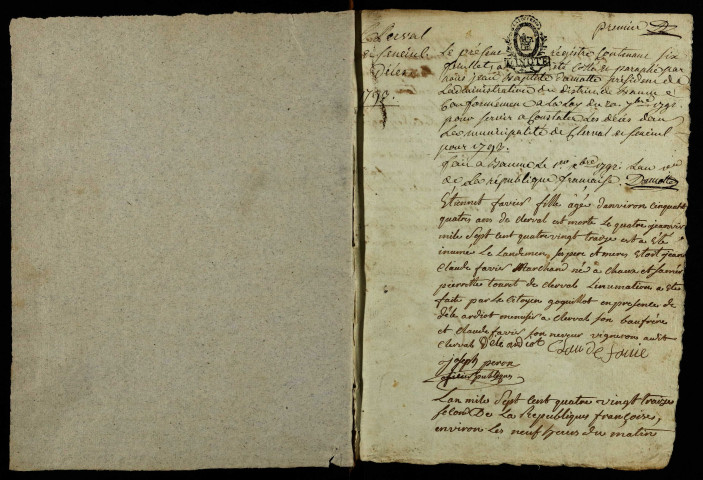 premier
Clerval
Le présent registre contenant six
feuillets a été cotté et paraphé par
nous jean Baptiste Damotte président de
Ladministration du district de Baume
Conformement a La Loy du 20. 7bre 1792
pour servir a Constater Les décès dans
La municipalité de Clerval
pour 1793.
1793.
fait a Baume Le 1er Xbre 1792. Lan 1er
de La république francaise. Damotte
Etiennet favier fille âgée danviron cinquante
quatres ans de clerval est morte le quatre jeanvier
mile Sept cent quatre vingt traize est a été
inumée Le Landemen, Sa pere et mere etoit jean
Claude favier Marchand né a chaux et
pierrette de clerval Linumation a ete
faite par Le Citoyen goguillot en presence de
ardiot menusié a clerval Son
et Claude favier Son neveur vigneron audit
clerval ardiot
joseph peron
officier publique
Lan mile Sept Cent quatre vingt traize
Second De La Republiques françoise,
environ Les neuf heurs du matin